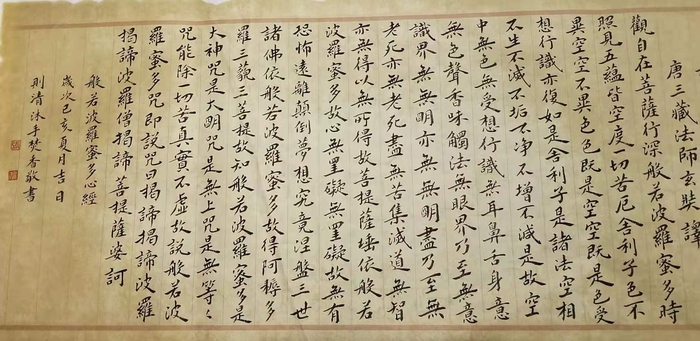 唐三藏法師玄奘譯
觀自在菩薩行深般若波羅蜜多時
照見五蘊皆空度一切苦厄舍利子色不
異空空不異色色既是空空既是色受
想行識亦復如是舍利子是諸法空相
不生不滅不垢不淨不增不減是故空
中無色無受想行識無耳鼻舌身意
無色聲香味觸法無眼界乃至無意
識界無無明亦無無明盡乃至無
老死亦無老死盡無苦集滅道無智
亦無得以無所得故菩提薩埵依般若
波羅蜜多故心無罣礙無罣礙故無有
恐怖遠離顛倒夢想究竟涅盤三世
諸佛依般若波羅蜜多故得阿耨多
羅三藐三菩提故知般若波羅蜜多是
大神咒是大明咒是無上咒是無等々
咒能除一切苦真實不虛故說般若波
羅蜜多咒即說咒曰揭諦揭諦波羅
揭諦波羅僧揭諦菩提薩婆訶
般若波羅蜜多心經
歲次己亥夏月吉日
則清沐手焚香敬書